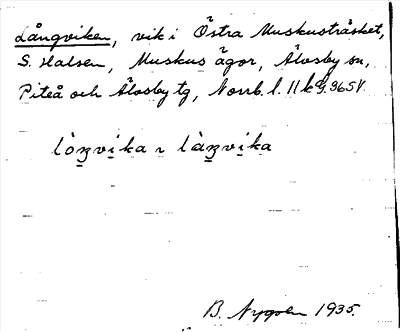 Långviken, vik i Östra Muskusträsket,
S. Halsen, Muskus ägor, Älvsby sn,
Piteå och Älvsby tg, Norrb. l. 11 k
lòŋvika l làŋvika
B. Nygren 1935.